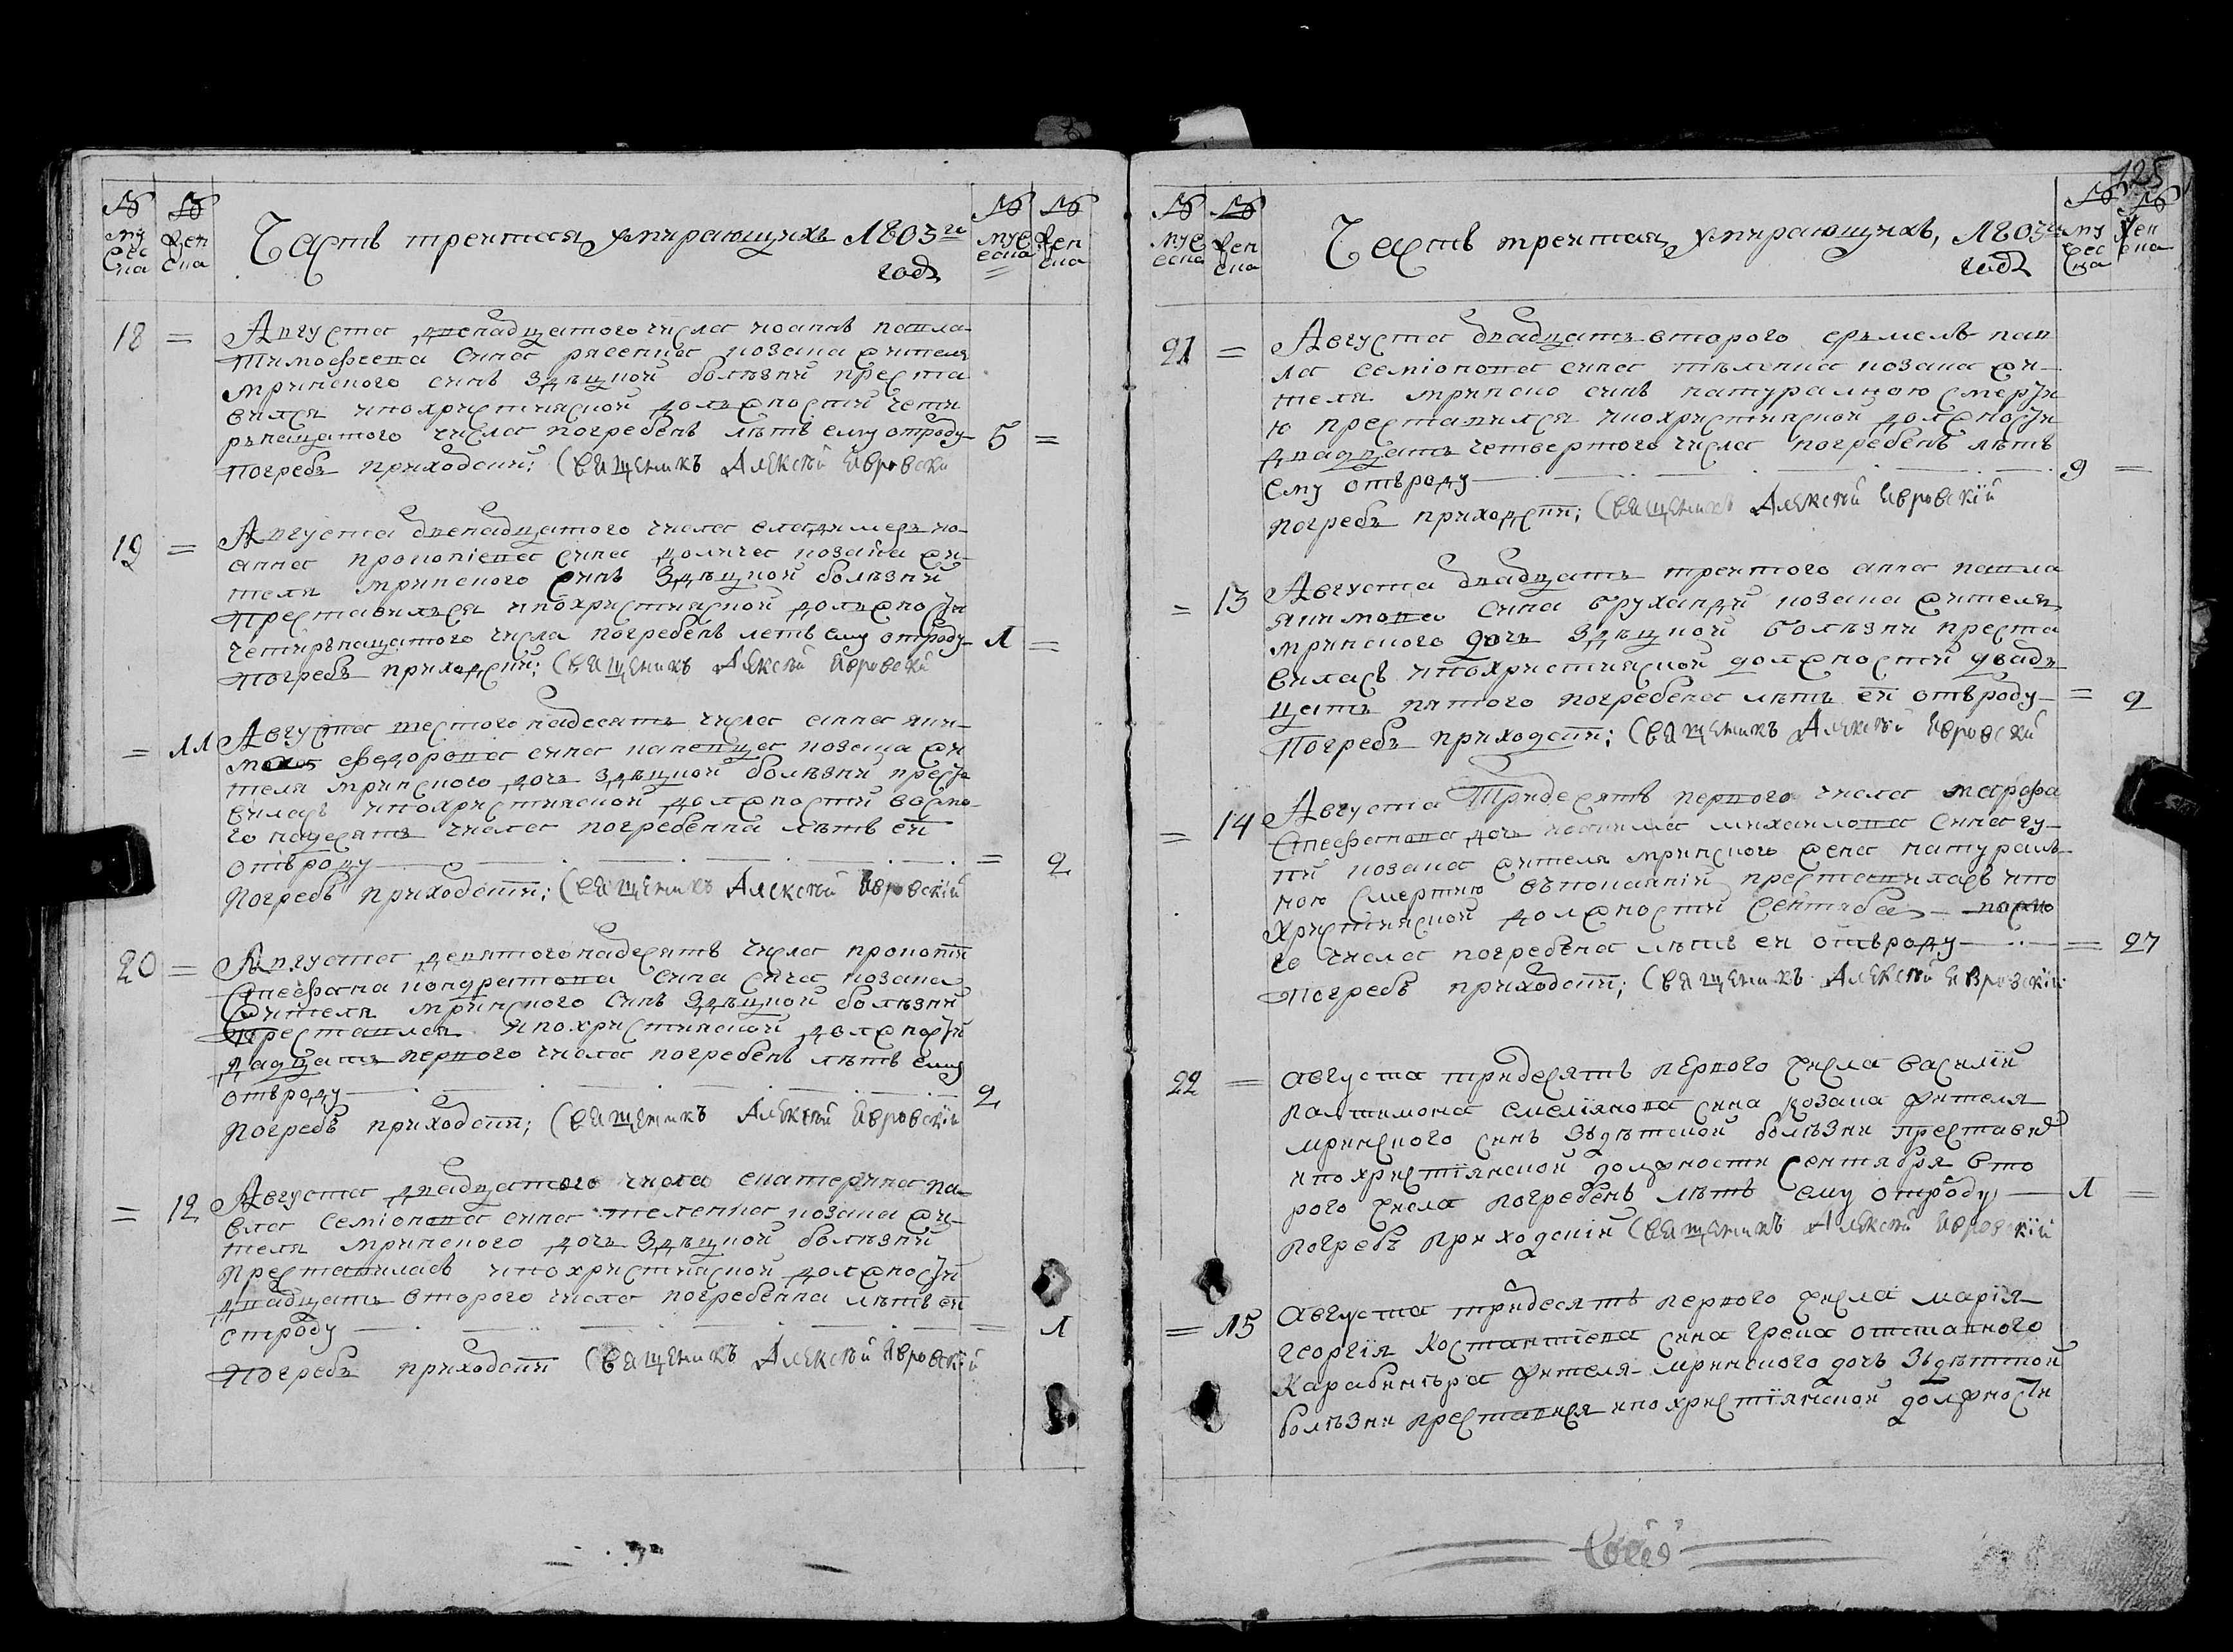 № мужеска
№ женска
Часть треттая умирающихъ 1803го
года
№ мужеска
№ женска
18 = Августа двенадцатого числа иоаннъ павла
Тимофеева сина козака жителя
мринского синъ здѣцкой болѣзни преста
вился ипохристиянской должности чети
рънацатого числа погребенъ лѣтъ ему отроду 5 =
погребъ приходский; Священикъ Алексѣй Явровски
19 = Августа двенадцатого числа владимеръ ио
анна прокопіева сина козака жи
теля мринского синъ здѣцкой болѣзни
преставилъся ипохристиянской должности
четирънацатого числа погребенъ летъ ему отроду 1 =
погребъ приходский; Священикъ Алексѣй Явровский
= 11 Августа шестогонадесять числа анна яки
федорова сина козака жи
теля мринского дочь здѣцкой болѣзни преста
виласъ ипохристиянской должности восмо
го нацесять числа погребенна лѣтъ ей
отъроду = 2
погребъ приходский; Священикъ Алексѣй Явровскій
20 = Августа девятогонадесять числа прокопій
Стефана кондратова сина козака
жителя мринского синъ здѣцкой болѣзни
преставился ипохристиянской должности
двадцать первого числа погребенъ лѣтъ ему
отъроду 2
погребъ приходский; Священикъ Алексѣй Явровскій
= 12 Августа двадцатого числа екатерина па
вла семіонова сина теленка козака жи
теля мринского дочь здѣцкой болѣзни
преставиласъ ипохристиянской должности
двадцать второго числа погребенна лѣтъ ей
отроду = 1
погребъ приходский Священикъ Алексѣй Явровскій
125
№ мужеска
№ женска
Часть треттая умирающихъ, 1803го
года
№ мужеска
№ женска
21 = Августа двадцать второго ермелъ пав
ла семіонова сина теленка козака жи
теля мринско синъ натуралною смерти
ю преставился ипохристиянской должности
двадцать четвертого числа погребенъ лѣтъ
ему отъроду 9 =
погребъ приходский; Священикъ Алексѣй Явровскій
= 13 Августа двадцать третого анна павла
якимова сина брухандй козака жителя
мринского дочь здѣцкой болѣзни преста
виласъ ипохристиянской должности двадъ
цать пятого погребена лѣтъ ей отъроду = 2
Погребъ приходский; Священикъ Алексѣй Явровский
= 14 Августа Тридесять первого числа марфа
Стефанова дочь михаилова сина гу
козака жителя мринского жена натурал
ною смертию въпокаянии преставиласъ ипо
християнской должности сентября перво
го числа погребѣна лѣтъ ей отъроду = 27
погребъ приходский; Священикъ Алексѣй Явровскій
22 = августа тридесятъ первого числа василій
пантимона емеліянова сина козака жителя
мринского синъ зъдѣтской болѣзни преставив
ипохристіянской должности сентября вто
рого числа погребенъ лѣтъ ему отроду 1 =
погребъ приходскій Священикъ Алексѣй Явровскій
= 15 августа тридесятъ первого числа марія
георгія костантіева сина грека отставного
карабинѣра жителя мринского дочь зъдѣтской
болѣзни преставися ипохристіянской должности